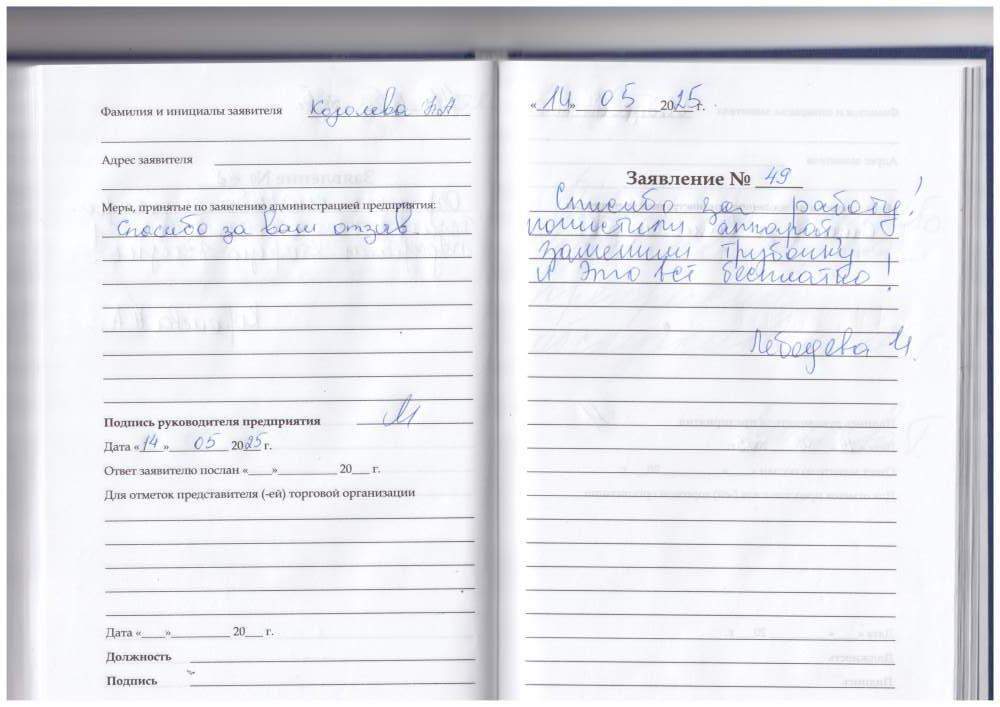 Фамилия и инициалы заявителя Козолева Н.А
Адрес заявителя
Меры, принятые по заявлению администрацией предприятия:
Спасибо за ваш отзыв
Подпись руководителя предприятия
Дата «14» 05 2025 г.
Ответ заявителю послан «___»_________ 20__ г.
Для отметок представителя (-ей) торговой организации
Дата «___»_________ 20__ г.
Должность
Подпись
«14» 05 2025 г.
Заявление № 49
Спасибо за работу!
почистили аппарат,
заменили трубочку
и это всё бесплатно!
Лебедева И.